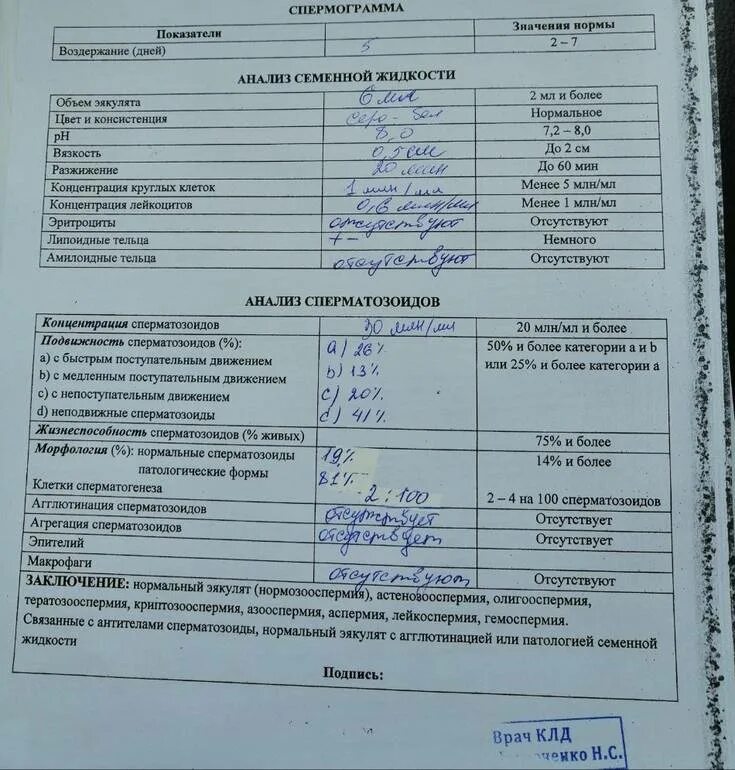 СПЕРМОГРАММА
Показатели Значения нормы
Воздержание (дней) 5 2 – 7
АНАЛИЗ СЕМЕННОЙ ЖИДКОСТИ
Объем эякулята 6 мл 2 мл и более
Цвет и консистенция серо-бел Нормальное
pH 8,0 7,2 – 8,0
Вязкость 0,5см До 2 см
Разжижение 20 мин До 60 мин
Концентрация круглых клеток 1 млн/мл Менее 5 млн/мл
Концентрация лейкоцитов 0,6 млн/мл Менее 1 млн/мл
Эритроциты отсутствуют Отсутствуют
Липоидные тельца + – Немного
Амилоидные тельца отсутствуют Отсутствуют
АНАЛИЗ СПЕРМАТОЗОИДОВ
Концентрация сперматозоидов 30 млн/мл 20 млн/мл и более
Подвижность сперматозоидов (%): а) 26% 50% и более категории a и b
а) с быстрым поступательным движением b) 13% или 25% и более категории a
b) с медленным поступательным движением c) 20%
c) с непоступательным движением d) 41%
d) неподвижные сперматозоиды
Жизнеспособность сперматозоидов (% живых) 75% и более
Морфология (%): нормальные сперматозоиды 19% 14% и более
патологические формы 81%
Клетки сперматогенеза 2:100 2 – 4 на 100 сперматозоидов
Агглютинация сперматозоидов отсутствует Отсутствует
Агрегация сперматозоидов отсутствует Отсутствует
Эпителий
Макрофаги отсутствуют Отсутствуют
ЗАКЛЮЧЕНИЕ: нормальный эякулят (нормозооспермия), астенозооспермия, олигооспермия,
тератозооспермия, криптозооспермия, азооспермия, аспермия, лейкоспермия, гемоспермия.
Связанные с антителами сперматозоиды, нормальный эякулят с агглютинацией или патологией семенной
жидкости
Подпись:
Врач КЛД
Н.С.